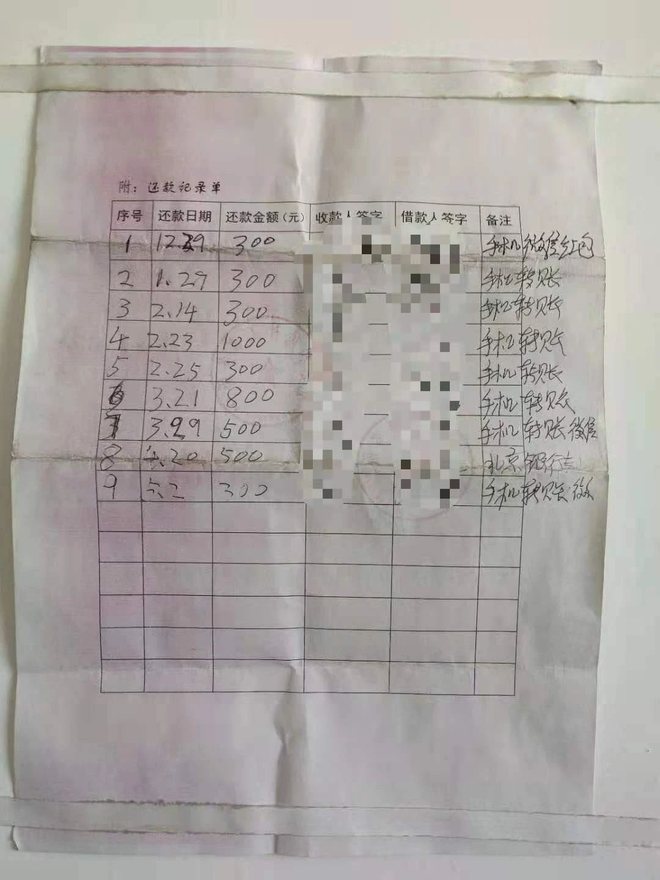 附：还款记录单
序号 还款日期 还款金额（元） 收款人签字 借款人签字 备注
1 12.29 300 手机微信红包
2 1.29 300 手机转账
3 2.14 300 手机转账
4 2.23 1000 手机转账
5 2.25 300 手机转账
6 3.21 800 手机转账
7 3.29 500 手机转账 微信
8 4.20 500 北京银行
9 5.2 300 手机转账